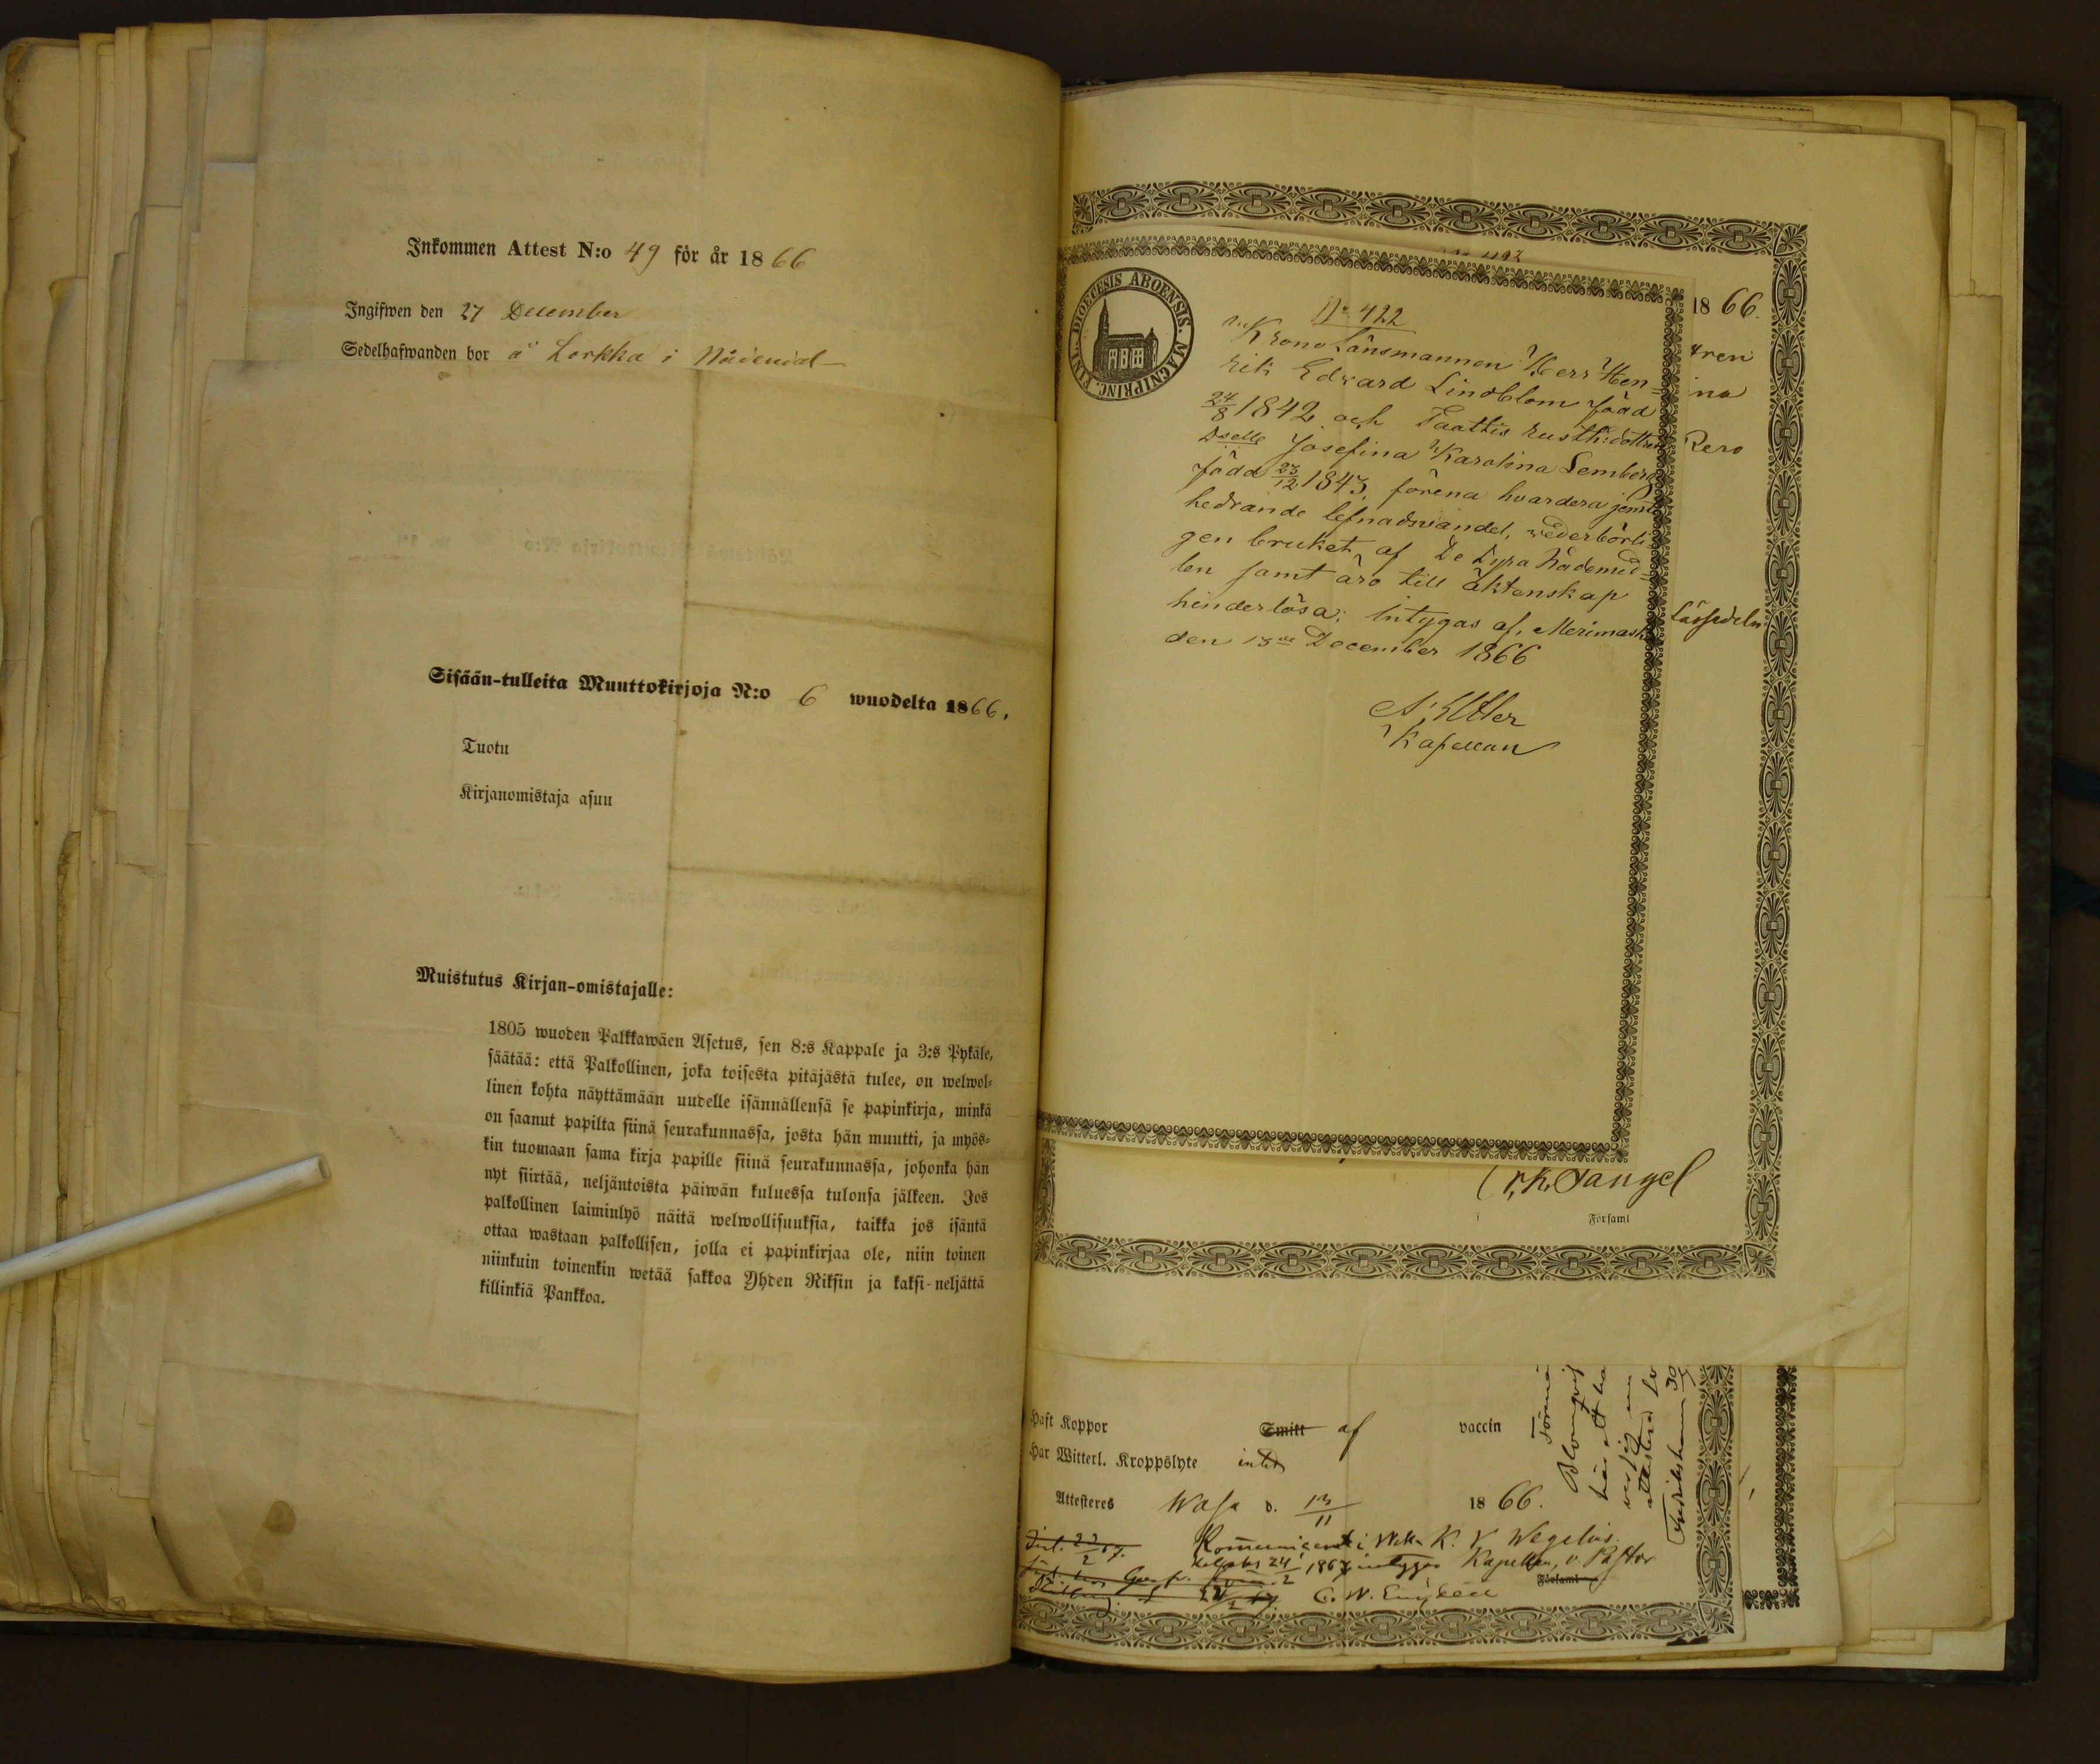 Inkommen Attest N:o 49 för år 1866
Ingifwen den 27 December
Sedelhafwanden bor å Lorkka i Nådendal
Sisään-tulleita Muuttokirjoja N:o 6 wuodelta 1866.
Tuotu
Kirjanomistaja asuu
Muistutus Kirjan-omistajalle:
1805 wuoden Palkkawäen Asetus, sen 8:s Kappale ja 3:s Pykäle,
säätää: että Palkollinen, joka toisesta pitäjästä tulee, on welwol-
linen kohta näyttämään uudelle isännällensä se papinkirja, minkä
on saanut papilta siinä seurakunnassa, josta hän muutti, ja myös-
kin tuomaan sama kirja papille siinä seurakunnassa, johonka hän
nyt siirtää, neljäntoista päiwän kuluessa tulonsa jälkeen. Jos
palkollinen laiminlyö näitä welwollisuuksia, taikka jos isäntä
ottaa wastaan palkollisen, jolla ei papinkirjaa ole, niin toinen
niinkuin toinenkin wetää sakkoa Yhden Riksin ja kaksi-neljättä
killinkiä Pankkoa.
DIOECESIS ABOENSIS. MAGNIPRINC. FINL.
No 422
Krono Länsmannen Herr Hen-
rik Edvard Lindblom född
24/8 1842 och Taattis rusth:dottren
Dselle Josefina Karolina Lemberg
född 23/12 1843, förena hvardera jemte
hedrande lefnadsvandel, wederbörli-
gen bruket af De Dyra Nådemed-
len samt äro till äktenskap
hinderlösa; intygas af, Merimask
den 13de December 1866
Kapellan
1866.
tren
na
Rero
Låssedeln
Tangel
Församl
Haft Koppor Smitt af vaccin
Har Witterl. Kroppslyte intet
Attesteres Wasa d. 13/11 1866.
K. V. Wegelius.
24/2 1867 intygas Kapellan, v. Pastor
Församl
C. W.